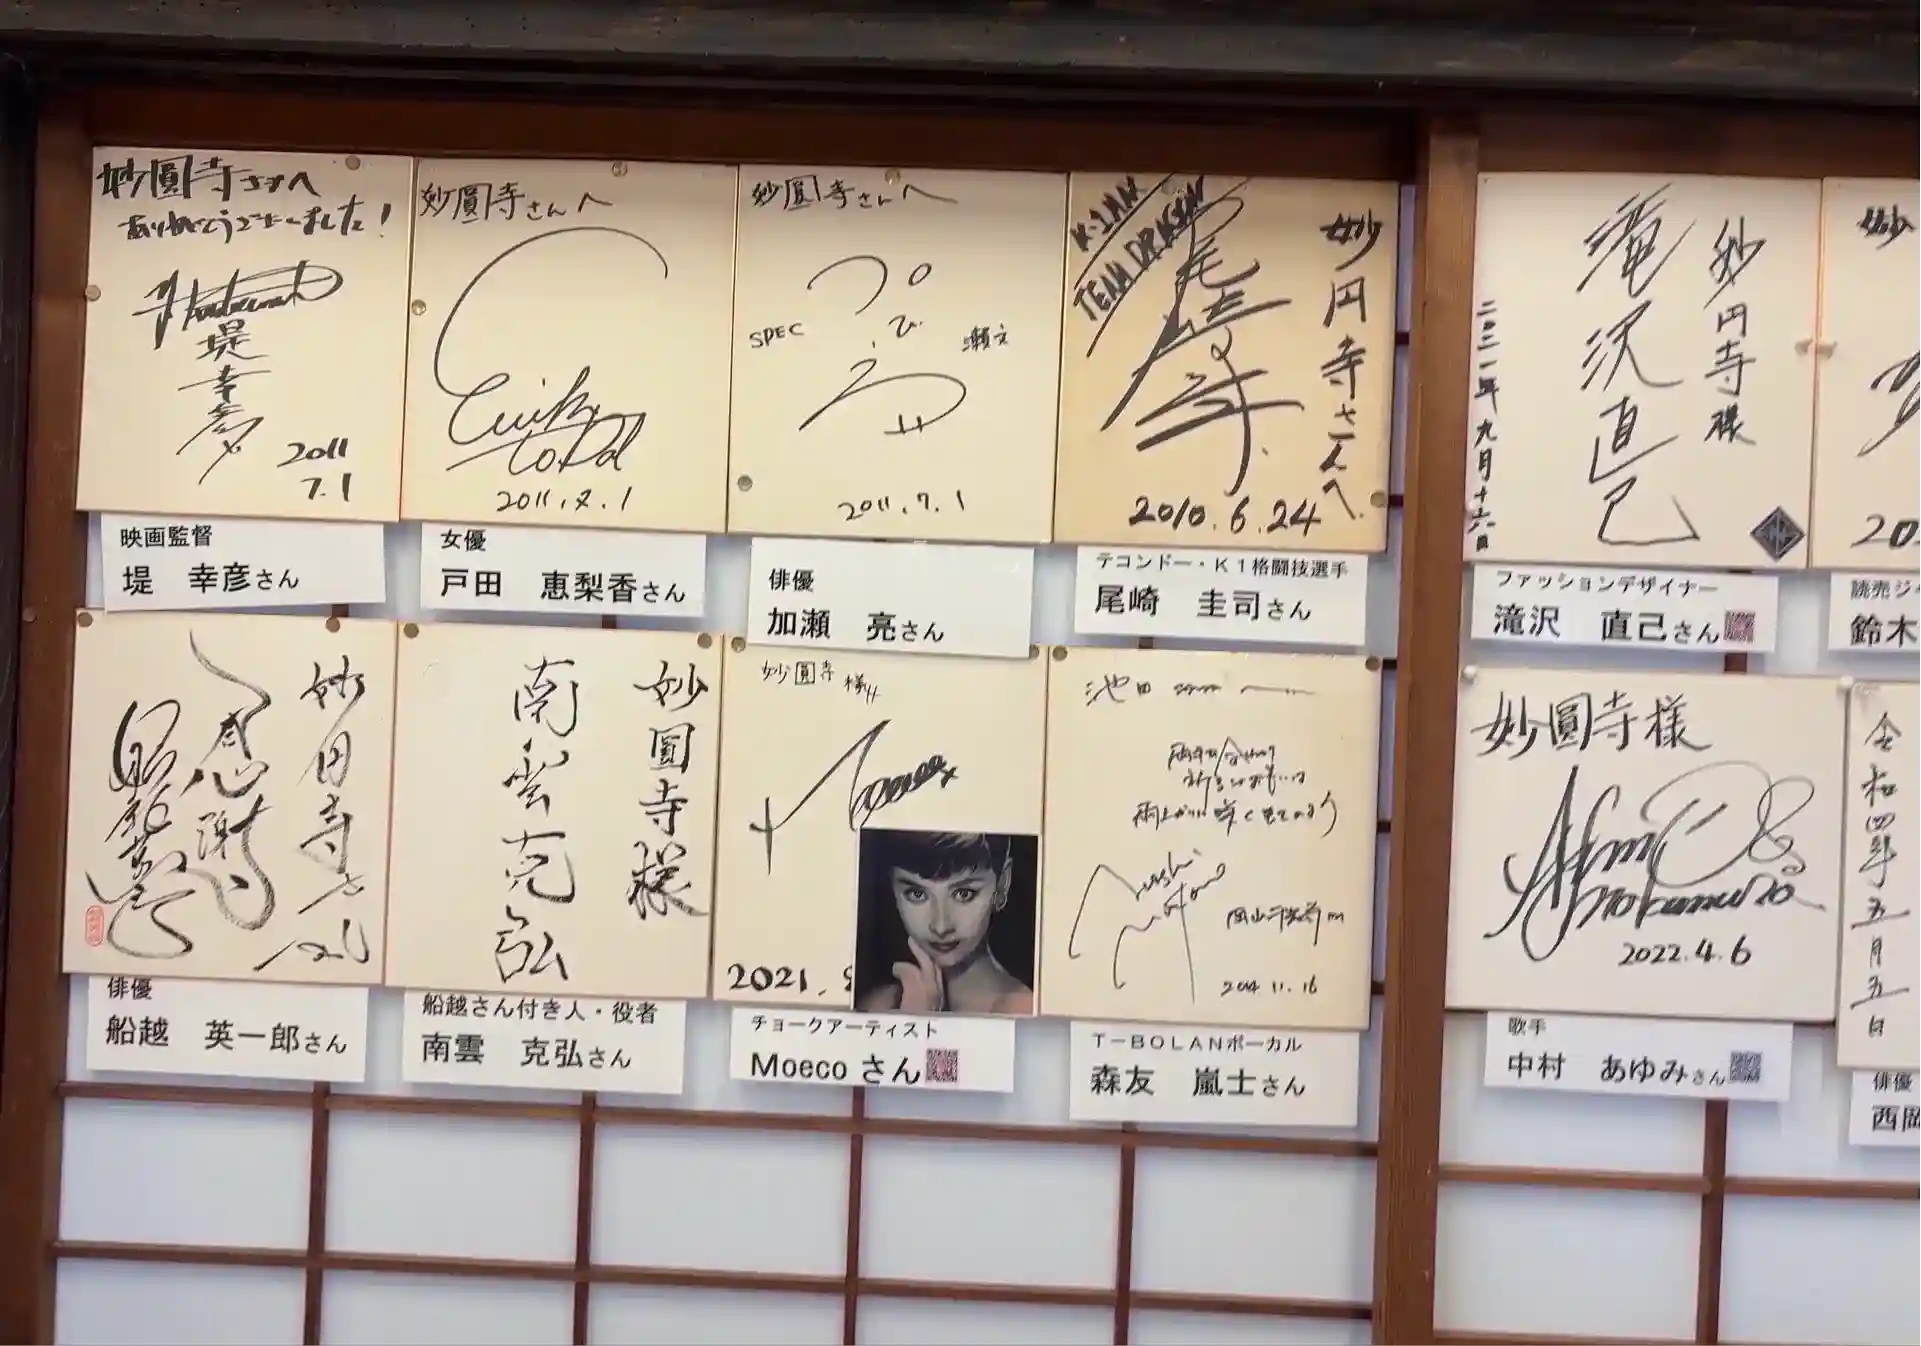 妙圓寺さんへ
ありがとうございました!
堤幸彦
2011
7.1
映画監督
堤 幸彦さん
妙圓寺さんへ
2011.7.1
女優
戸田 恵梨香さん
妙圓寺さんへ
SPEC
瀬文
2011.7.1
俳優
加瀬 亮さん
K-1 MAX
TEAM DRAGON
妙円寺さんへ
尾崎圭司
2010.6.24
テコンドー・K1格闘技選手
尾崎 圭司さん
妙円寺様
滝沢直己
二〇二一年九月十六日
ファッションデザイナー
滝沢 直己さん
妙
読売ジャ
鈴木
妙円寺さん
感謝
船越英一郎
俳優
船越 英一郎さん
妙圓寺様
南雲克弘
船越さん付き人・役者
南雲 克弘さん
妙圓寺様
Moeco
2021.
チョークアーティスト
Moecoさん
池田
2014.11.16
T-BOLANボーカル
森友 嵐士さん
妙圓寺様
Ayumi Nakamura
2022.4.6
歌手
中村 あゆみさん
令和四年五月五日
俳優
西岡